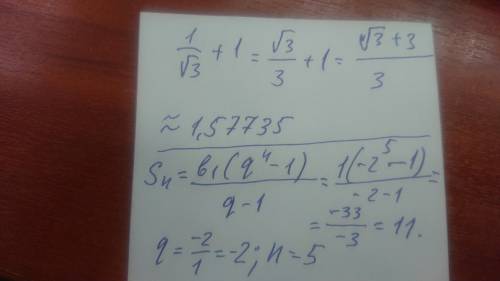 1/√3 + 1 = √3/3 + 1 = (√3 + 3)/3
≈ 1,57735
Sₙ = b₁(qⁿ - 1)/(q - 1) = 1(-2⁵ - 1)/(-2 - 1) =
= -33/-3 = 11.
q = -2/1 = -2; n = 5